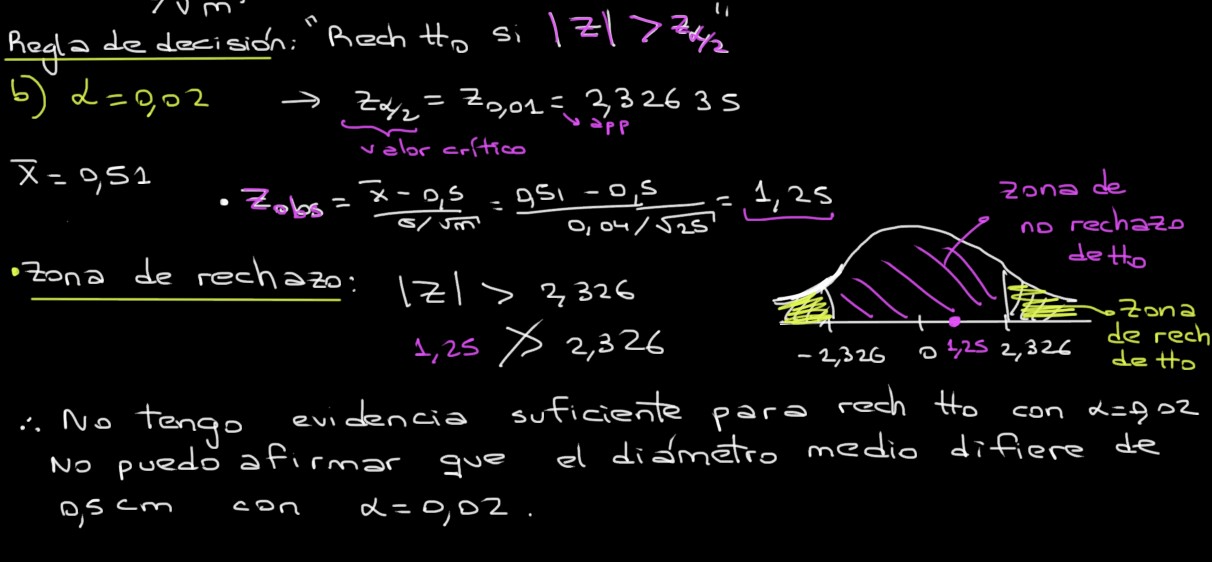 /√m
Regla de decisión: "Rech H₀ si |Z| > z_α/2"
b) α = 0,02 → z_α/2 = z_0,01 = 2,32635
app
valor crítico
x̄ = 0,51
• Z_obs = (x̄ - 0,5)/(σ/√m) = (0,51 - 0,5)/(0,04/√25) = 1,25
zona de
no rechazo
de H₀
• Zona de rechazo: |Z| > 2,326
1,25 ≯ 2,326
-2,326 0 1,25 2,326
Zona
de rech
de H₀
∴ No tengo evidencia suficiente para rech H₀ con α=0,02
No puedo afirmar que el diámetro medio difiere de
0,5 cm con α = 0,02.